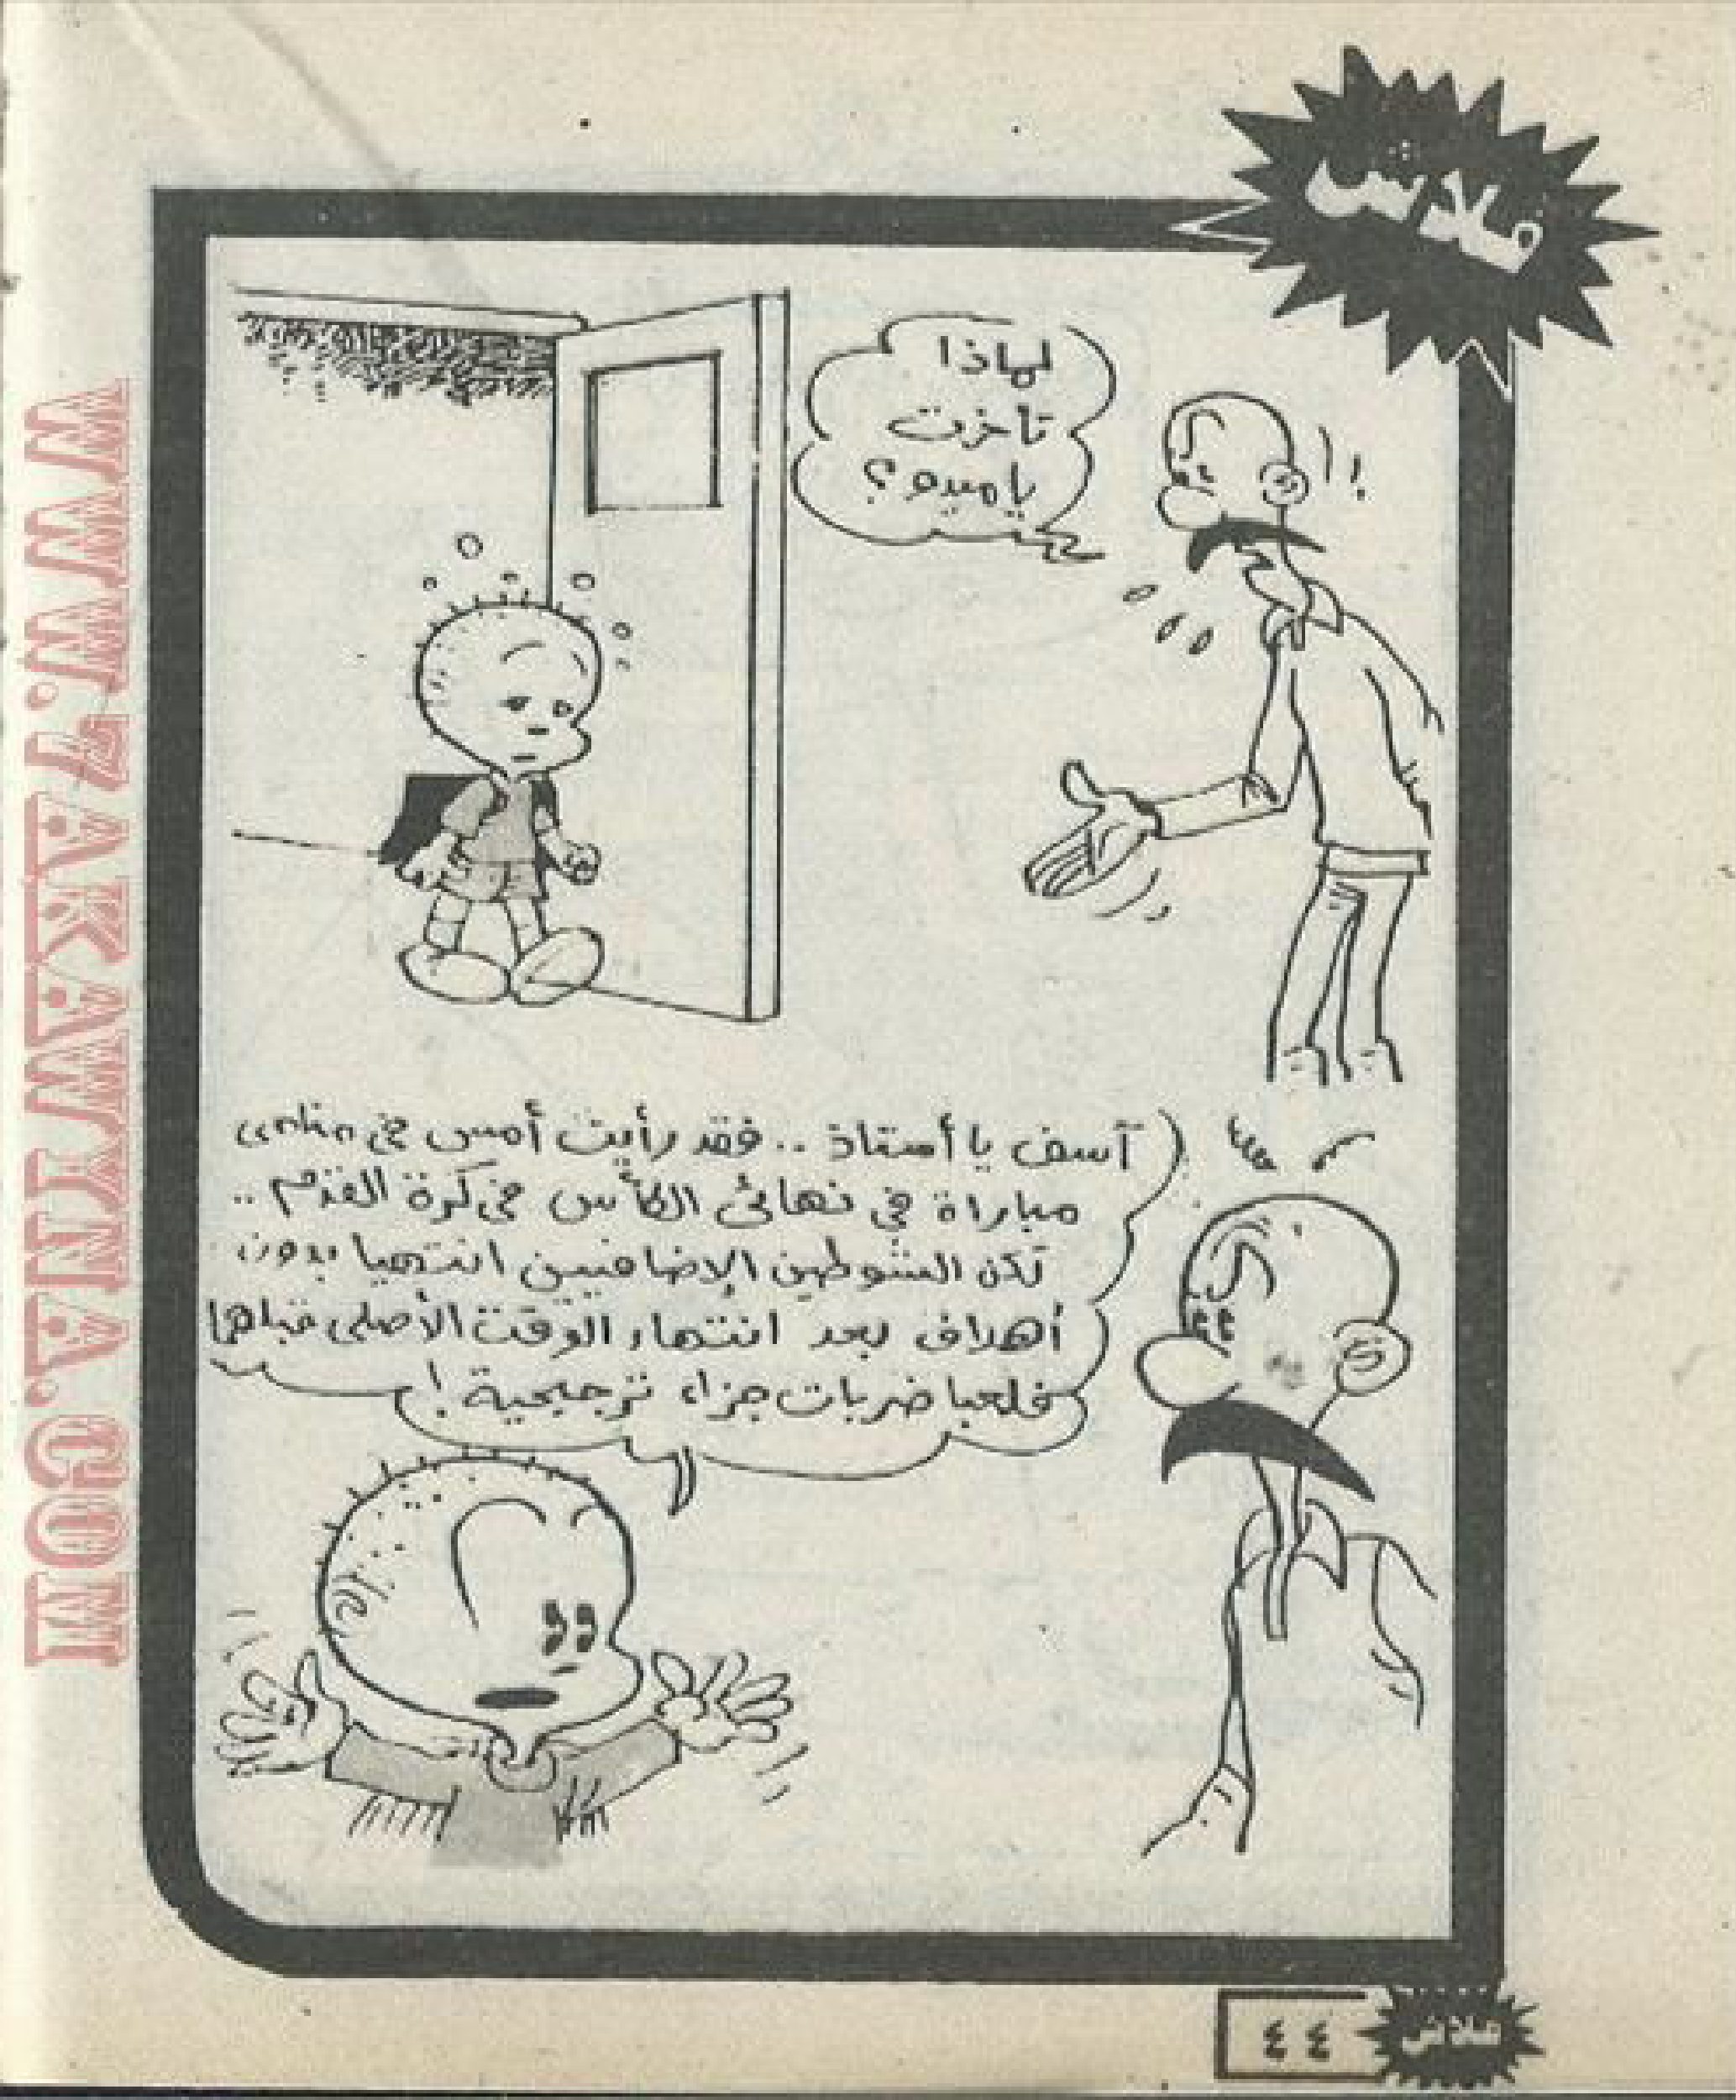 فلاش
لماذا
تأخرت
يا ميدو؟
!!
آسف يا أستاذ .. فقد رأيت أمس في منامى
مباراة في نهائى الكأس في كرة القدم ..
لكن الشوطين الإضافيين انتهيا بدون
أهداف بعد انتهاء الوقت الأصلى قبلها
فلعبا ضربات جزاء ترجيحية!
٤٤
فلاش
WWW.ZAKAWTNA.COM